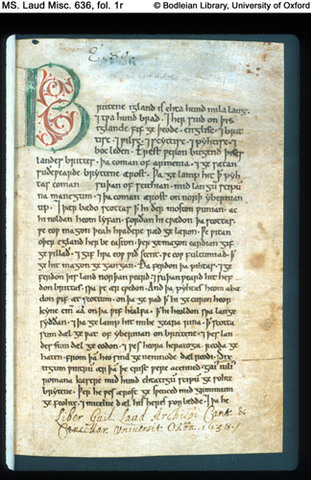 MS. Laud Misc. 636, fol. 1r
© Bodleian Library, University of Oxford
Brittene igland is ehta hund mila lang.
⁊ tƿa hund brad. ⁊ her sind on þis
iglande fif geþeode. englisc. ⁊ brit
tisc. ⁊ ƿilsc. ⁊ scyttisc. ⁊ pyhtisc. ⁊
boc leden. Erest ƿeron bugend þises
landes brittes. þa coman of armenia. ⁊ gesætan
suðeƿearde bryttene ærost. Þa gelamp hit ꝥ pyh
tas coman suþan of scithian. mid langū scipū
na manegum. ⁊ þa coman ærost on norþ ybernian
up. ⁊ þær bædo scottas ꝥ hi ðer moston ƿunian. ac
hi noldan heom lyfan. forðan hi cƿædon þa scottas.
ƿe eoƿ magon þeah hƿaðere ræd gelæron. Ƿe ƿitan
oþer egland her be easton. þer ge magon eardian gif
ge ƿillað. ⁊ gif hƿa eoƿ ƿiðstent. ƿe eoƿ fultumiað. ꝥ
ge hit magon gegangan. Ða ferdon þa pihtas. ⁊ ge
ferdon þis land norþanƿeard. ⁊ suþanƿeard hit hef
don brittas. sƿa ƿe ær cƿedon. And þa pyhtas heom abæ
don ƿif æt scottum. on þa gerad ꝥ hi gecuron heora
kynecinn aa on þa ƿif healfa. ꝥ hi heoldon sƿa lange
syððan. ⁊ þa gelamp hit imbe geara rina. ꝥ scotta
sum dæl geƿat of ybernian on brittene. ⁊ þes lan
des sum dæl geeodon. ⁊ ƿes heora heratoga reoda ge
haten. From þā heo sind genemnode dælreodi. Six
tigum ƿintrū ær þā þe crist ƿere acenned. gaius iuliꝰ
romana kasere mid hund ehtatigū scipū gesohte
bryttene. Þer he ƿes ærost gesƿenced mid grimmum
gefeohte. ⁊ micelne dæl his heres forlædde. ⁊ þa he
Liber Guil. Laud Archiepi Cant. &
Cancellar. Universit. Oxon. 1638.